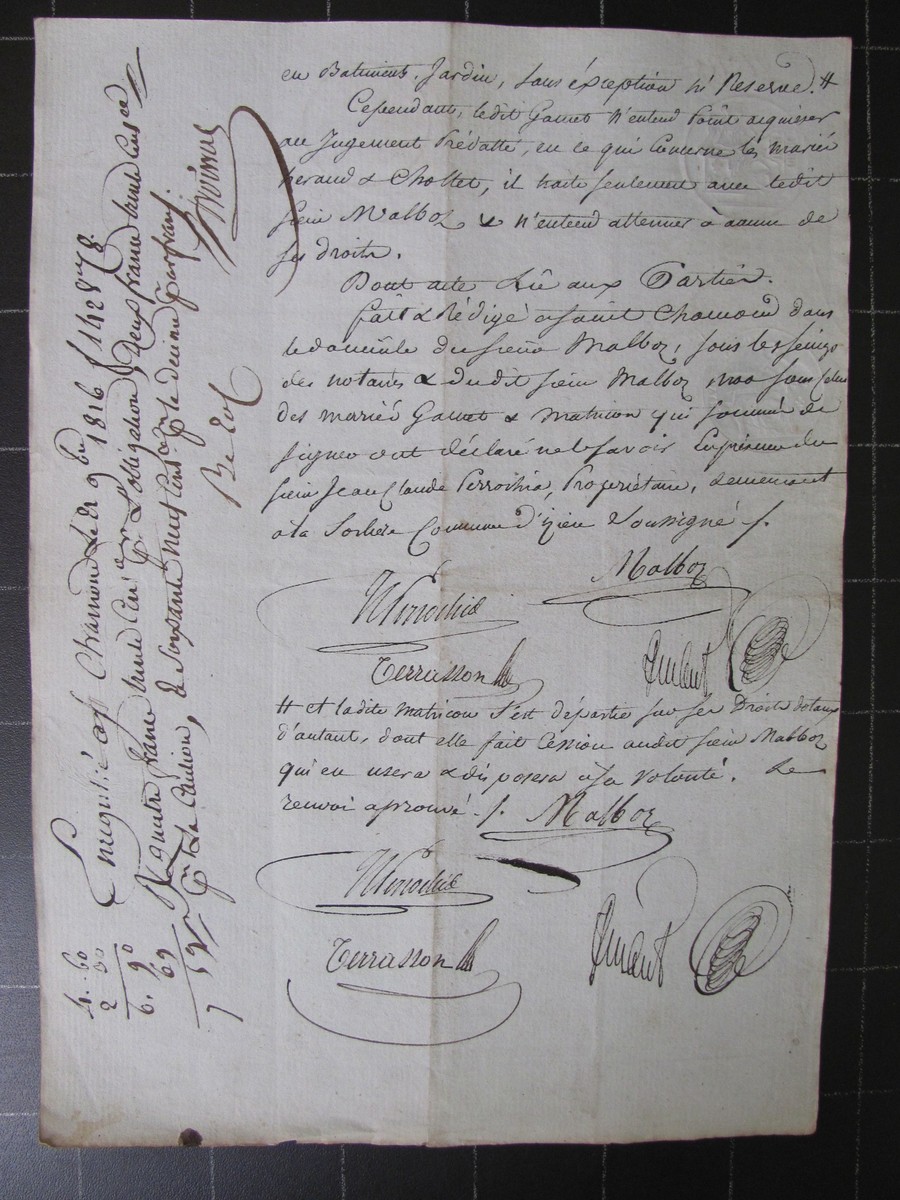 en Batiments, Jardin, sans éxception ni Reserve. #
Cependant, ledit Gamet N'entend Point acquiescer
au Jugement Prédatté, en ce qui Concerne les mariés
peraud & Chollet, il traite seulement avec ledit
sieur Malboz & N'entend attenuer à aucun de
ses droits.
Dont acte Lû aux Parties.
fait & Rédigé a saint Chamond dans
le domicile du sieur Malboz, sous les seings
des notaires & dudit sieur Malboz, non
des mariés Gamet & Matricon qui sommés de
signer ont déclaré ne le savoir En présence du
sieur Jean Claude Perrochia, Propriétaire, demeurant
a la Commune d'izieu Soussigné ./.
Malboz
Perrochia
Terrasson
finant
# et ladite matricon s'est départie sur ses Droits dotaux
d'autant, dont elle fait Cession audit sieur Malboz
qui en usera & disposera à sa volonté. Le
renvoi aprouvé ./. Malboz
Perrochia
Terrasson
finant
Enregistré a St Chamond Le 9bre 1816 f 142
quatre francs P. L'obligation, deux francs
P. La Caution, & soixante neuf Cent. Pr le decime
4. 60
2 30
6. 90
69
7 59